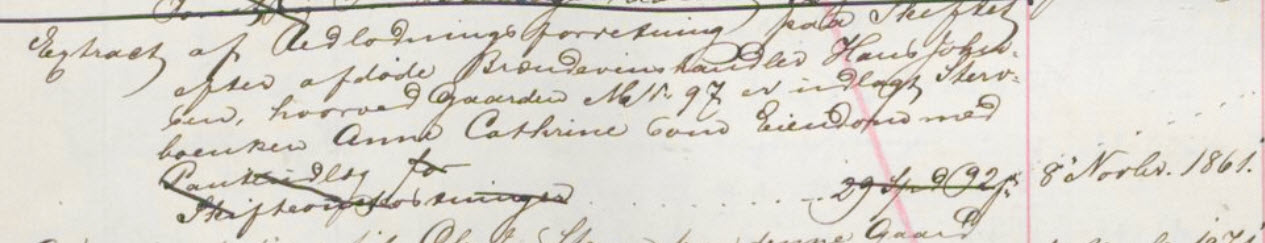 Extract af Udlodningsforretning paa Skiftet
efter afdöde Brændevinshandler Hans John-
sen, hvorved Gaarden M. N. 97 er indlagt Sterv-
boenken Anne Cathrine som Eiendom med
Panteudlæg for
Skifteomkostninger . . . . . . . . 29 Spd 92 s. 8 Novbr. 1861.
denne Gaard